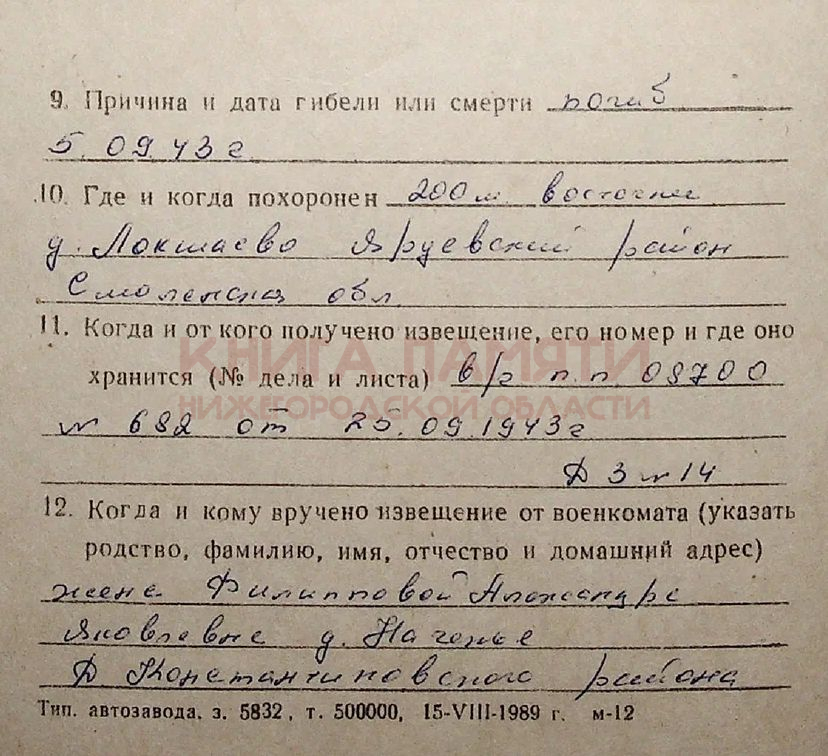 9. Причина и дата гибели или смерти погиб
5.09.43 г
10. Где и когда похоронен 200 м. восточнее
д. Локшаево Ярцевский район
Смоленская обл
11. Когда и от кого получено извещение, его номер и где оно
КНИГА ПАМЯТИ
хранится (№ дела и листа) в/г п.п. 08700
НИЖЕГОРОДСКОЙ ОБЛАСТИ
№ 682 от 25.09.1943 г
Д 3 л 14
12. Когда и кому вручено извещение от военкомата (указать
родство, фамилию, имя, отчество и домашний адрес)
жена Филипповой Александре
Яковлевне д.
Д Константиновского района
Тип. автозавода, з. 5832, т. 500000, 15-VIII-1989 г. м-12